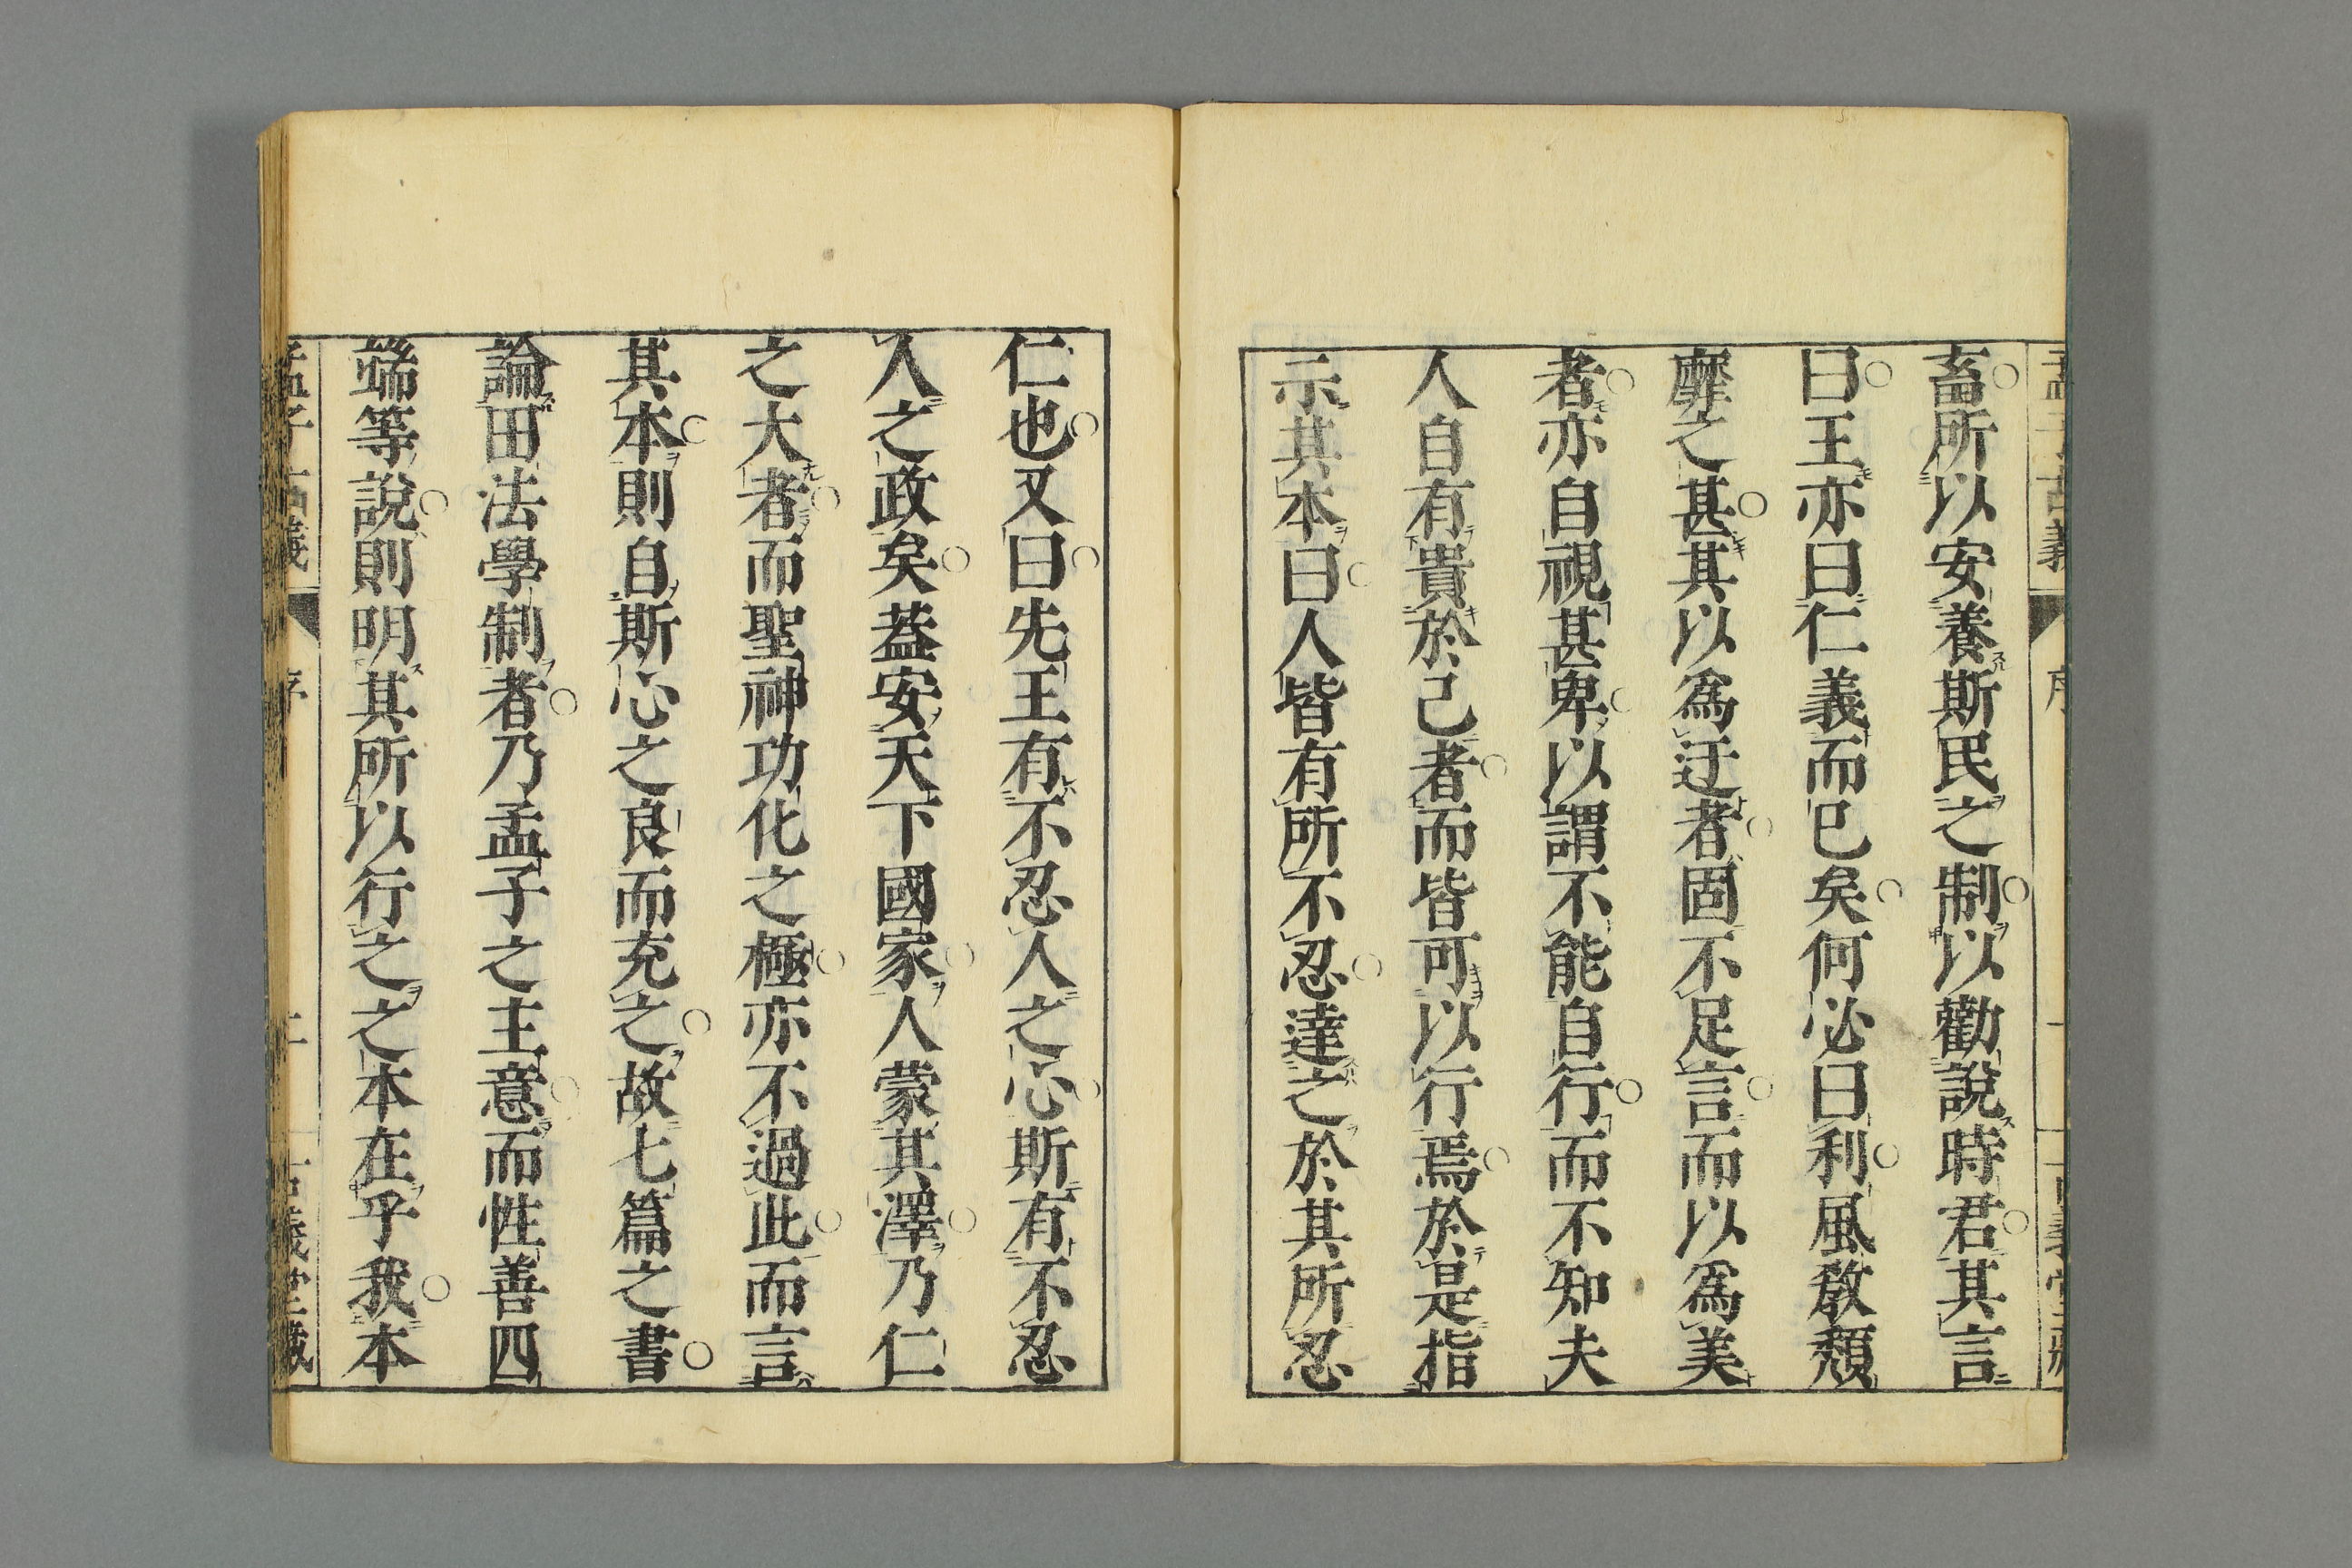 畜所以安養斯民之制以勸說時君其言
曰王亦曰仁義而已矣何必曰利風敎頽
靡之甚其以爲迂者固不足言而以爲美
者亦自視甚卑以謂不能自行而不知夫
人自有貴於己者而皆可以行焉於是指
示其本曰人皆有所不忍達之於其所忍
仁也又曰先王有不忍人之心斯有不忍
人之政矣蓋安天下國家人蒙其澤乃仁
之大者而聖神功化之極亦不過此而言
其本則自斯心之良而充之故七篇之書
論田法學制者乃孟子之主意而性善四
端等說則明其所以行之之本在乎我本